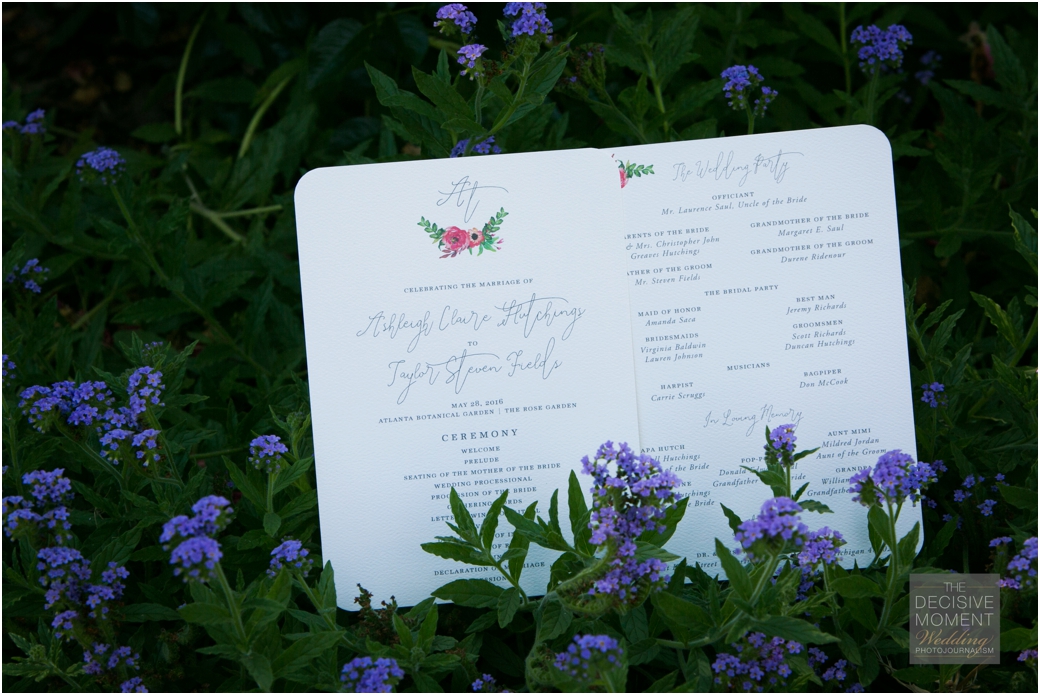 At
CELEBRATING THE MARRIAGE OF
Ashleigh Claire Hutchings
TO
Taylor Steven Fields
MAY 28, 2016
ATLANTA BOTANICAL GARDEN | THE ROSE GARDEN
CEREMONY
WELCOME
PRELUDE
SEATING OF THE MOTHER OF THE BRIDE
WEDDING PROCESSIONAL
PROCESSION OF THE BRIDE
DECLARATION OF MARRIAGE
The Wedding Party
OFFICIANT
Mr. Laurence Saul, Uncle of the Bride
RENTS OF THE BRIDE
& Mrs. Christopher John
Greaves Hutchings
GRANDMOTHER OF THE BRIDE
Margaret E. Saul
ATHER OF THE GROOM
Mr. Steven Fields
GRANDMOTHER OF THE GROOM
Durene Ridenour
THE BRIDAL PARTY
MAID OF HONOR
Amanda Saca
BEST MAN
Jeremy Richards
BRIDESMAIDS
Virginia Baldwin
Lauren Johnson
GROOMSMEN
Scott Richards
Duncan Hutchings
MUSICIANS
HARPIST
Carrie Scruggs
BAGPIPER
Don McCook
In Loving Memory
APA HUTCH
Hutchings
of the Bride
POP-P
Grandfather
AUNT MIMI
Mildred Jordan
Aunt of the Groom
William
Grandfath
DR.
Street
THE
DECISIVE
MOMENT
Wedding
PHOTOJOURNALISM